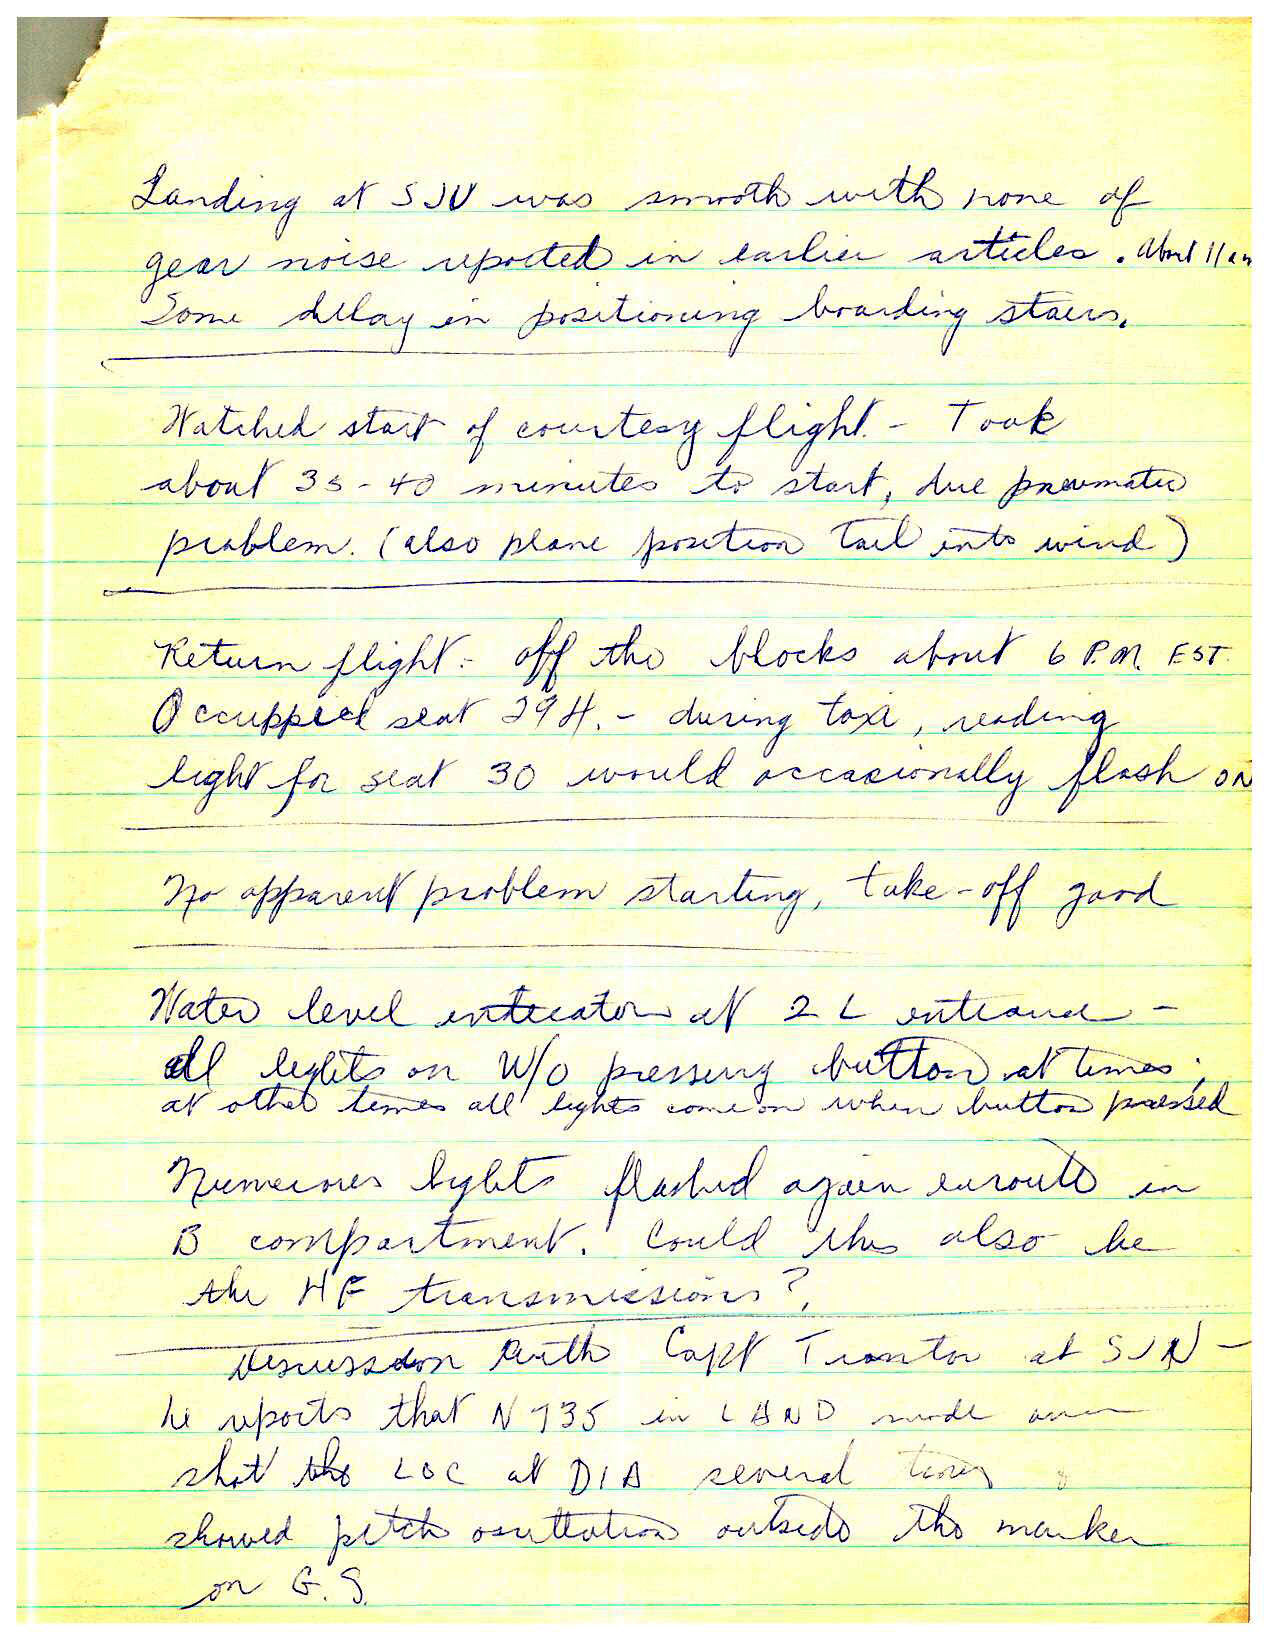 Landing at SJU was smooth with none of
gear noise reported in earlier articles. About 11 am
Some delay in positioning boarding stairs.
Watched start of courtesy flight. - Took
about 35-40 minutes to start, due pneumatic
problem. (also plane position tail into wind)
Return flight:- off the blocks about 6 P.M. EST.
Occuppied seat 29H. - during taxi, reading
light for seat 30 would occasionally flash ON
No apparent problem starting, take-off good
Water level indicator at 2L entrance -
all lights on W/O pressing button at times;
at other times all lights come on when button pressed
Numerous lights flashed again enroute in
B compartment. Could this also be
the HF transmissions?
Discussion with Capt at SJU -
he reports that N735 in LAND mode over
shot the LOC at DIA several times &
showed pitch oscillation outside the marker
on G.S.